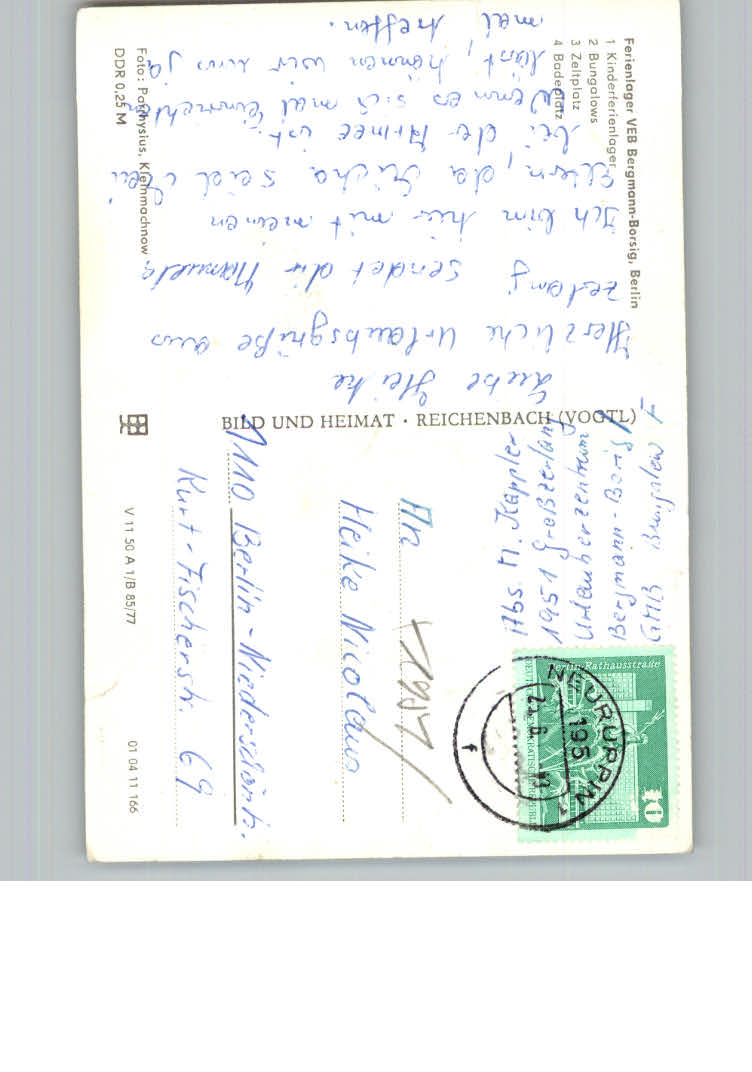 Ferienlager VEB Bergmann-Borsig, Berlin
1 Kinderferienlager
2 Bungalows
3 Zeltplatz
4 Badeplatz
Liebe Heike
Herzliche Urlaubsgrüße aus
Zerlang sendet dir Manuela.
Ich bin hier mit meinen
Eltern, da Micha seid Mai
bei der Armee ist.
Wenn es sich mal einrichten
läst, können wir uns ja
mal treffen.
Foto: Parthysius, Kleinmachnow
DDR 0,25 M
BILD UND HEIMAT · REICHENBACH (VOGTL)
V 11 50 A 1/B 85/77
01 04 11 166
Abs. M. Kappler
1951 Großzerlang
Urlauberzentrum
Bergmann-Borsig
GMB Bungalow F
Berlin-Rathausstraße
10
NEURUPPIN 1
195
f
An
Heike Nicolaus
1110 Berlin-Niederschönh.
Kurt-Fischerstr. 69